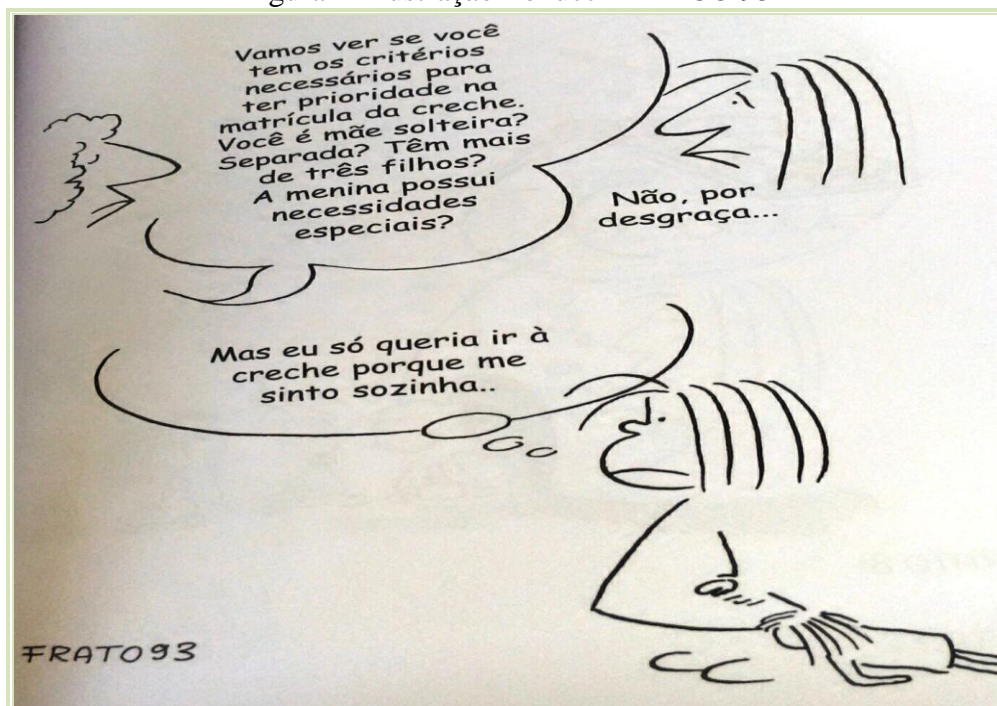 Vamos ver se você
tem os critérios
necessários para
ter prioridade na
matrícula da creche.
Você é mãe solteira?
Separada? Têm mais
de três filhos?
A menina possui
necessidades
especiais?
Não, por
desgraça...
Mas eu só queria ir à
creche porque me
sinto sozinha..
FRATO93